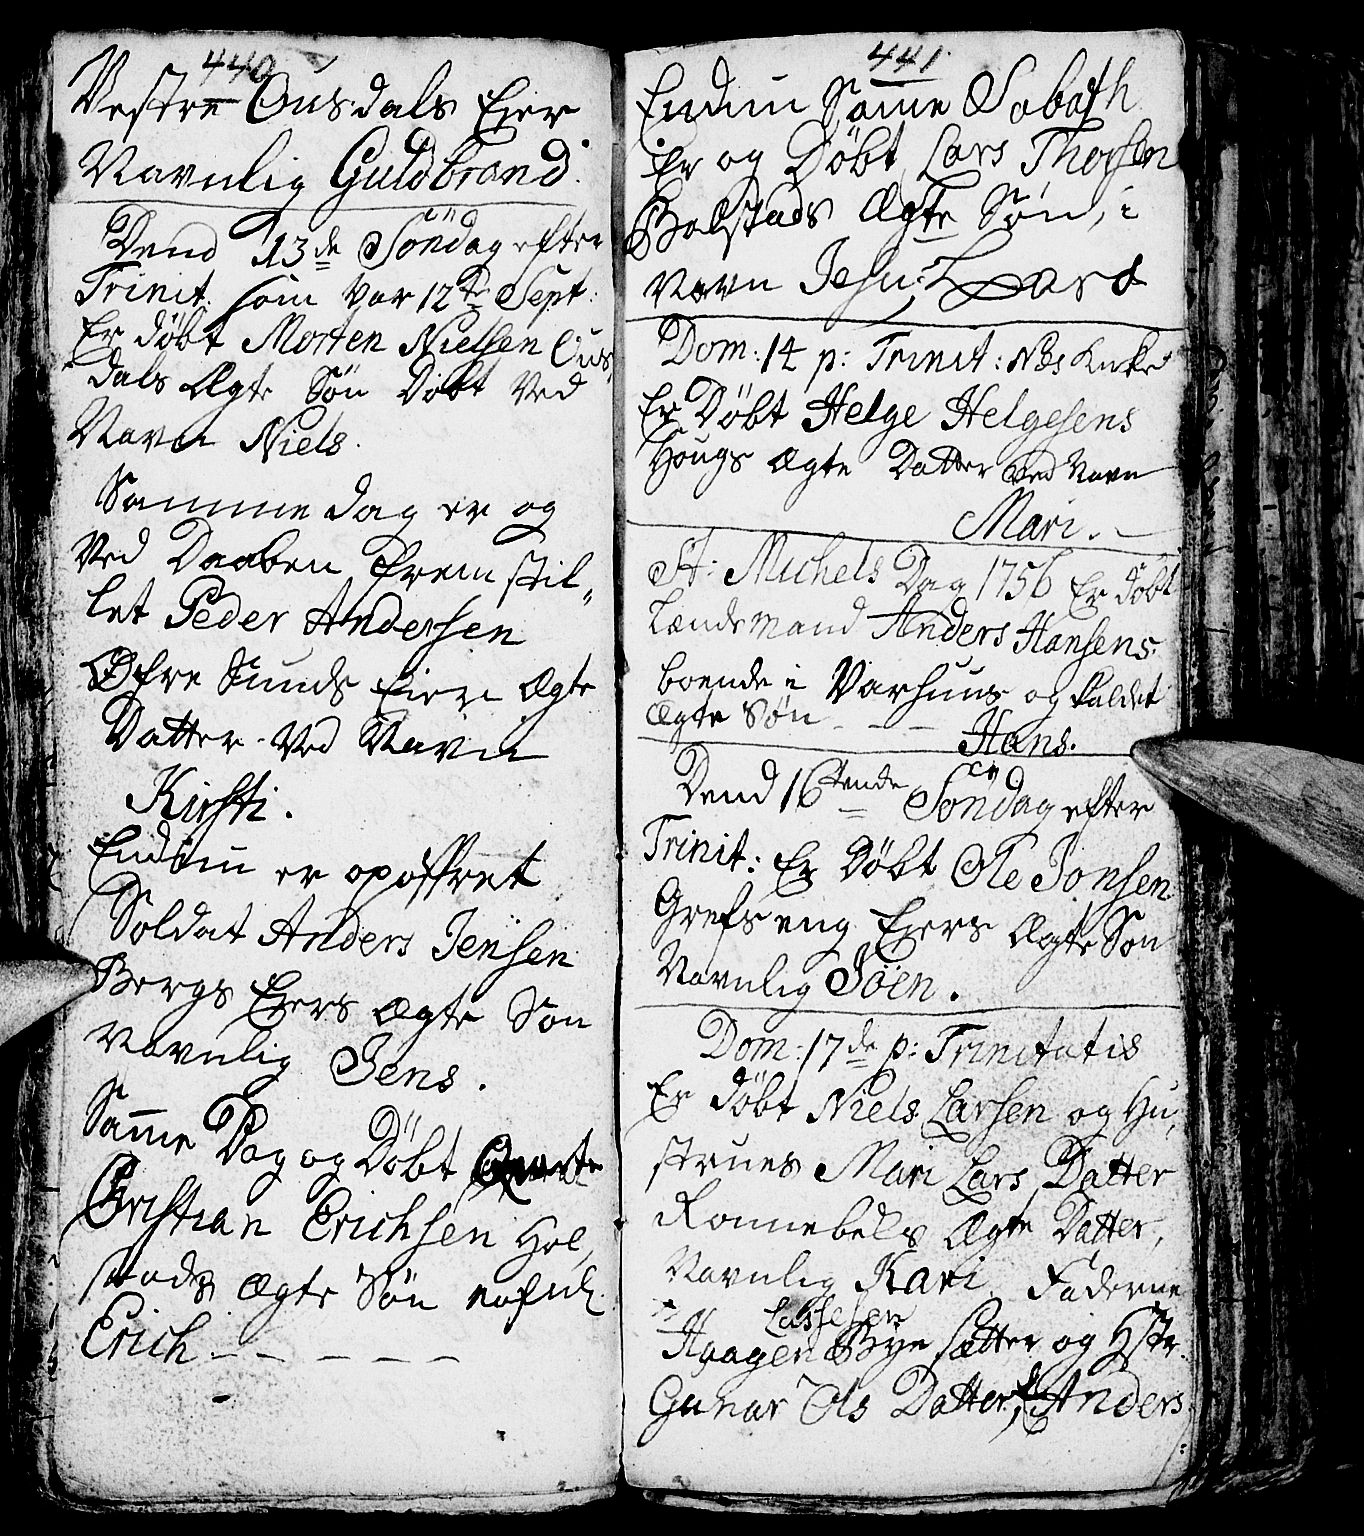 440
Vestre Ousdals Eier
Navnlig Guldbrand.
Dend 13de Söndag efter
Trinit: som var 12te Sept:
Er döbt Morten Nielsen Ous,
dals Ægte Sön Döbt Ved
Navn Niels.
Samme dag er og
Ved Daaben frem stil„
let Peder Andersen
Øfre Sunds Eiers Ægte
Datter Ved Navn
Kirsti.
Endnu er opoffret
Soldat Anders Jensen
Bergs Eiers Ægte Sön
Navnlig Jens.
Samme Dag og Döbt
Christian Erichsen Hol,
stads Ægte Sön
Erich
441
Endnu Samme Sabath
Er og Döbt Lars Thorsen
Bolstads Ægte Søn, i
Navn Jesu: Lars
Dom: 14 p: Trinit: Næs Kirke
Er Döbt Helge Helgesens
Hougs Ægte Datter Ved Navn
Mari.
St: Michels Dag 1756 Er döbt
Lændsmand Anders Hansens
boende i Varhuus og kaldet
Ægte Sön Hans.
Dend 16tende Söndag efter
Trinit: Er Döbt Ole Jonsen
Grefs eng Eiers Ægte Sön
Navnlig Jöen.
Dom: 17de p: Trinitatis
Er döbt Niels Larsen og Hu,
strues Mari Lars Datter
Ronnebels Ægte Datter,
Navnlig Kari. Faderne
Lassesen
Haagen Bye satter og Hstr.
Gunar Ols Datter, Anders